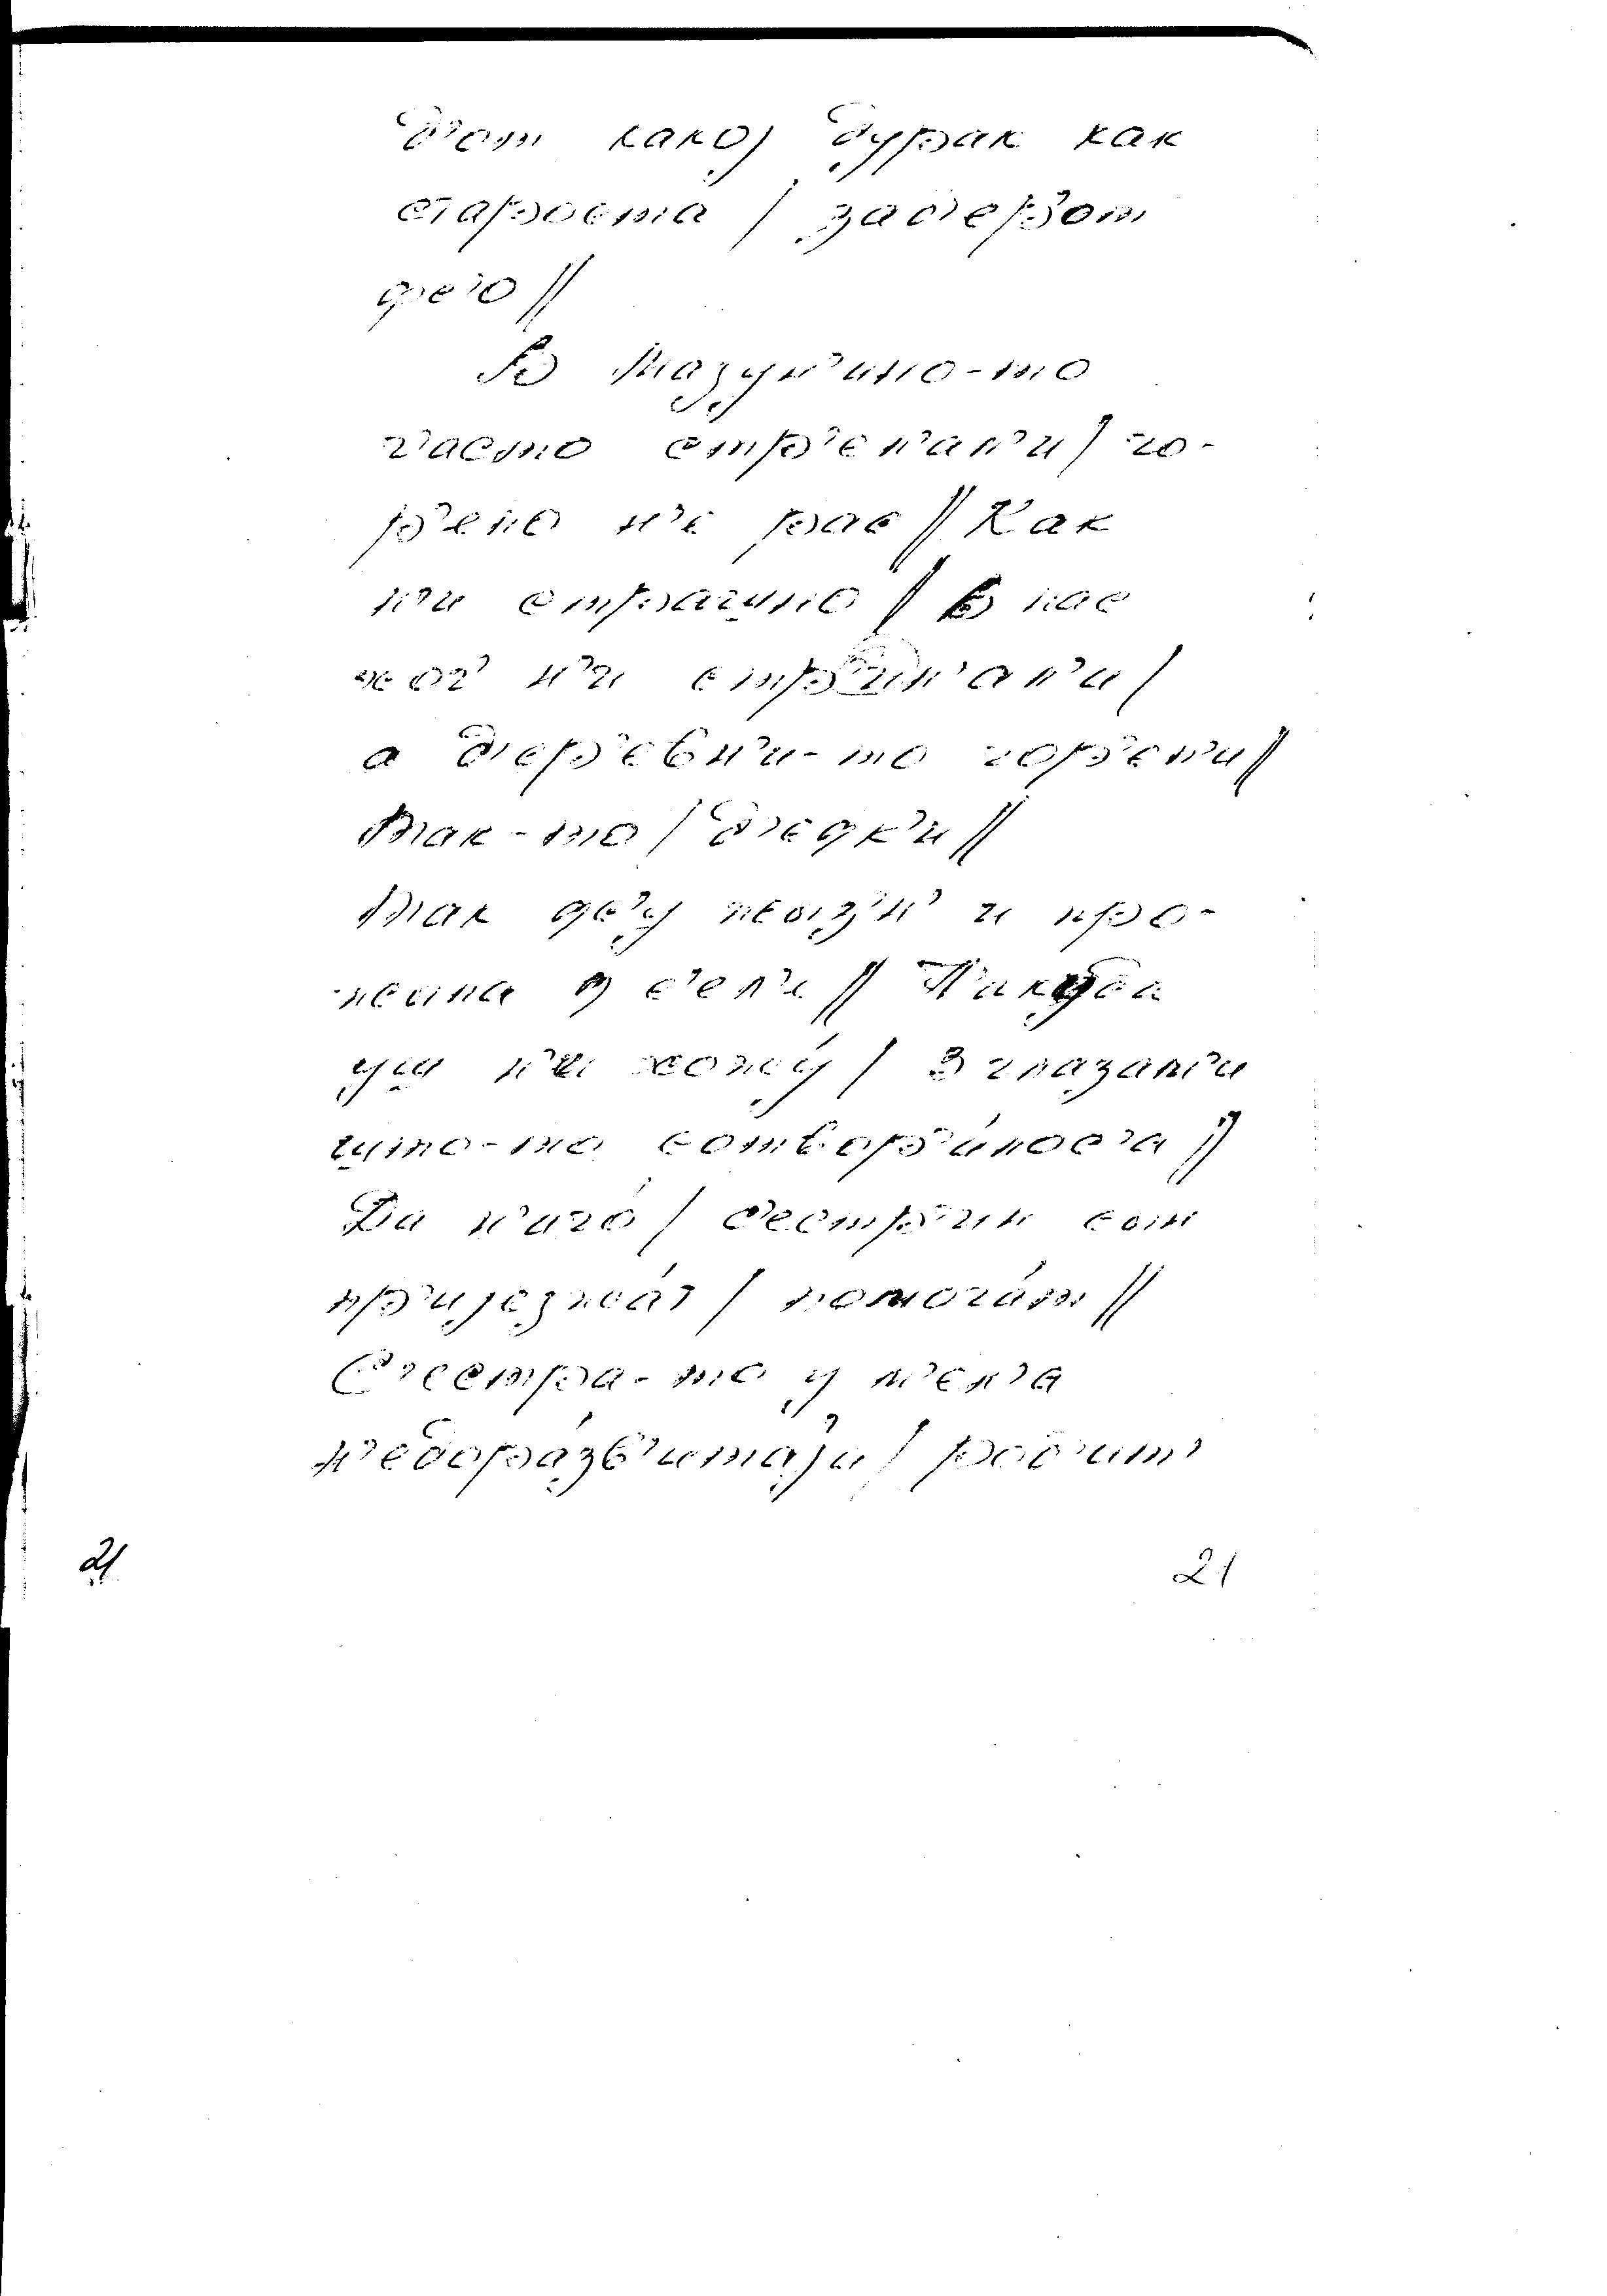 д'от какој дурак как
староста / зад'ер'от
фс'о //
В Мазун'ино-то
часто стр'ел'ал'и / го-
р'ело н'е рас // Как
л'и страшно // В нас
хот' н'и стр'ил'ал'и /
а д'ер'евн'и-то гор'ел'и //
Так-то / д'едк'и //
Так фс'у жыз'н' и про-
жыла в с'ел'и // Никуда
уш н'и хожу́ / З глазам'и
што-то сотвор'и́лос'а //
Да н'ичо́ / с'естр'ин сын
пр'ијезжа́т / помога́т //
С'естра-то у м'ен'а
н'едора́зв'итаја / род'ит'
21
21